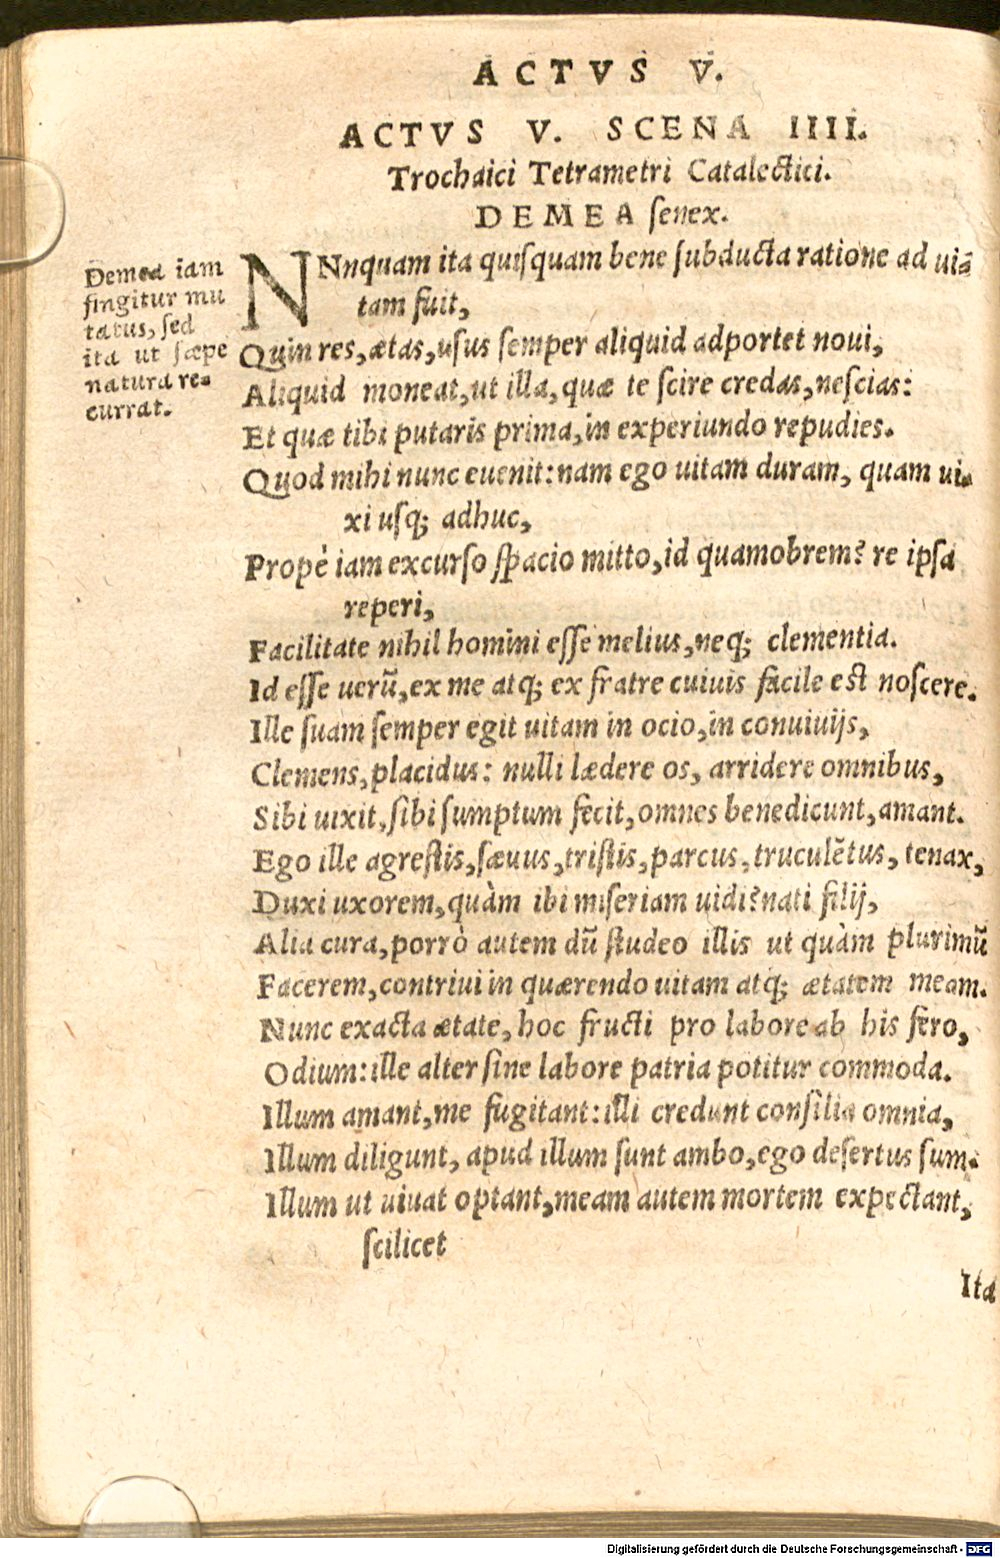 ACTVS V.
ACTVS V. SCENA IIII.
Trochaici Tetrametri Catalectici.
DEMEA senex.
Demea iam
fingitur mu
tatus, sed
ita ut sæpe
natura re-
currat.
NNnquam ita quisquam bene subducta ratione ad uiã
tam fuit,
Quin res, ætas, usus semper aliquid adportet noui,
Aliquid moneat, ut illa, quæ te scire credas, nescias:
Et quæ tibi putaris prima, in experiundo repudies.
Quod mihi nunc euenit: nam ego uitam duram, quam ui-
xi usq; adhuc,
Propè iam excurso spacio mitto, id quamobrem? re ipsa
reperi,
Facilitate nihil homini esse melius, neq; clementia.
Id esse uerũ, ex me atq; ex fratre cuiuis facile est noscere.
Ille suam semper egit uitam in ocio, in conuiuijs,
Clemens, placidus: nulli lædere os, arridere omnibus,
Sibi uixit, sibi sumptum fecit, omnes benedicunt, amant.
Ego ille agrestis, sæuus, tristis, parcus, truculẽtus, tenax,
Duxi uxorem, quàm ibi miseriam uidi? nati filij,
Alia cura, porrò autem dũ studeo illis ut quàm plurimũ
Facerem, contriui in quærendo uitam atq; ætatem meam.
Nunc exacta ætate, hoc fructi pro labore ab his fero,
Odium: ille alter sine labore patria potitur commoda.
Illum amant, me fugitant: illi credunt consilia omnia,
Illum diligunt, apud illum sunt ambo, ego desertus sum.
Illum ut uiuat optant, meam autem mortem expectant,
scilicet
Ita
Digitalisierung gefördert durch die Deutsche Forschungsgemeinschaft - DFG